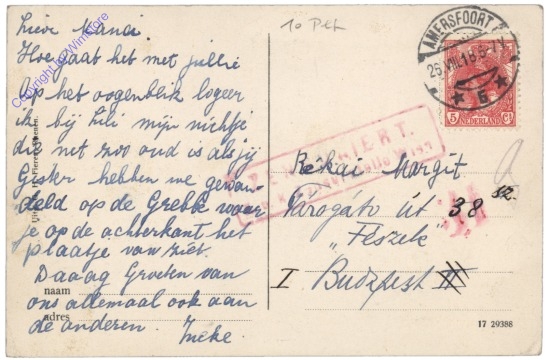 Lieve Manci.
Hoe gaat het met jullie
op het oogenblik logeer
ik bij Lili mijn nichtje
die net zoo oud is als jij
Gister hebben we gewan-
deld op de Grebbe waar
je op de achterkant het
plaatje van ziet.
Daaag Groeten van
ons allemaal ook aan
de anderen. Ineke.
naam
adres
10 Pef
AMERSFOORT
26.VIII.18.5-7.N
5
5 Ct
NEDERLAND
ZENSURIERT.
Rékai Margit
Városgató út 38 sz.
"Fészek"
I Budapest III
17 29388
Copyright by WinStore